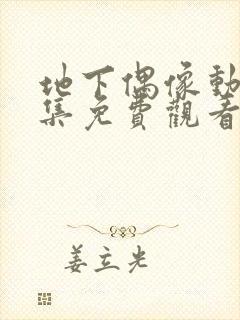 地下偶像動
集免費觀看
姜立光